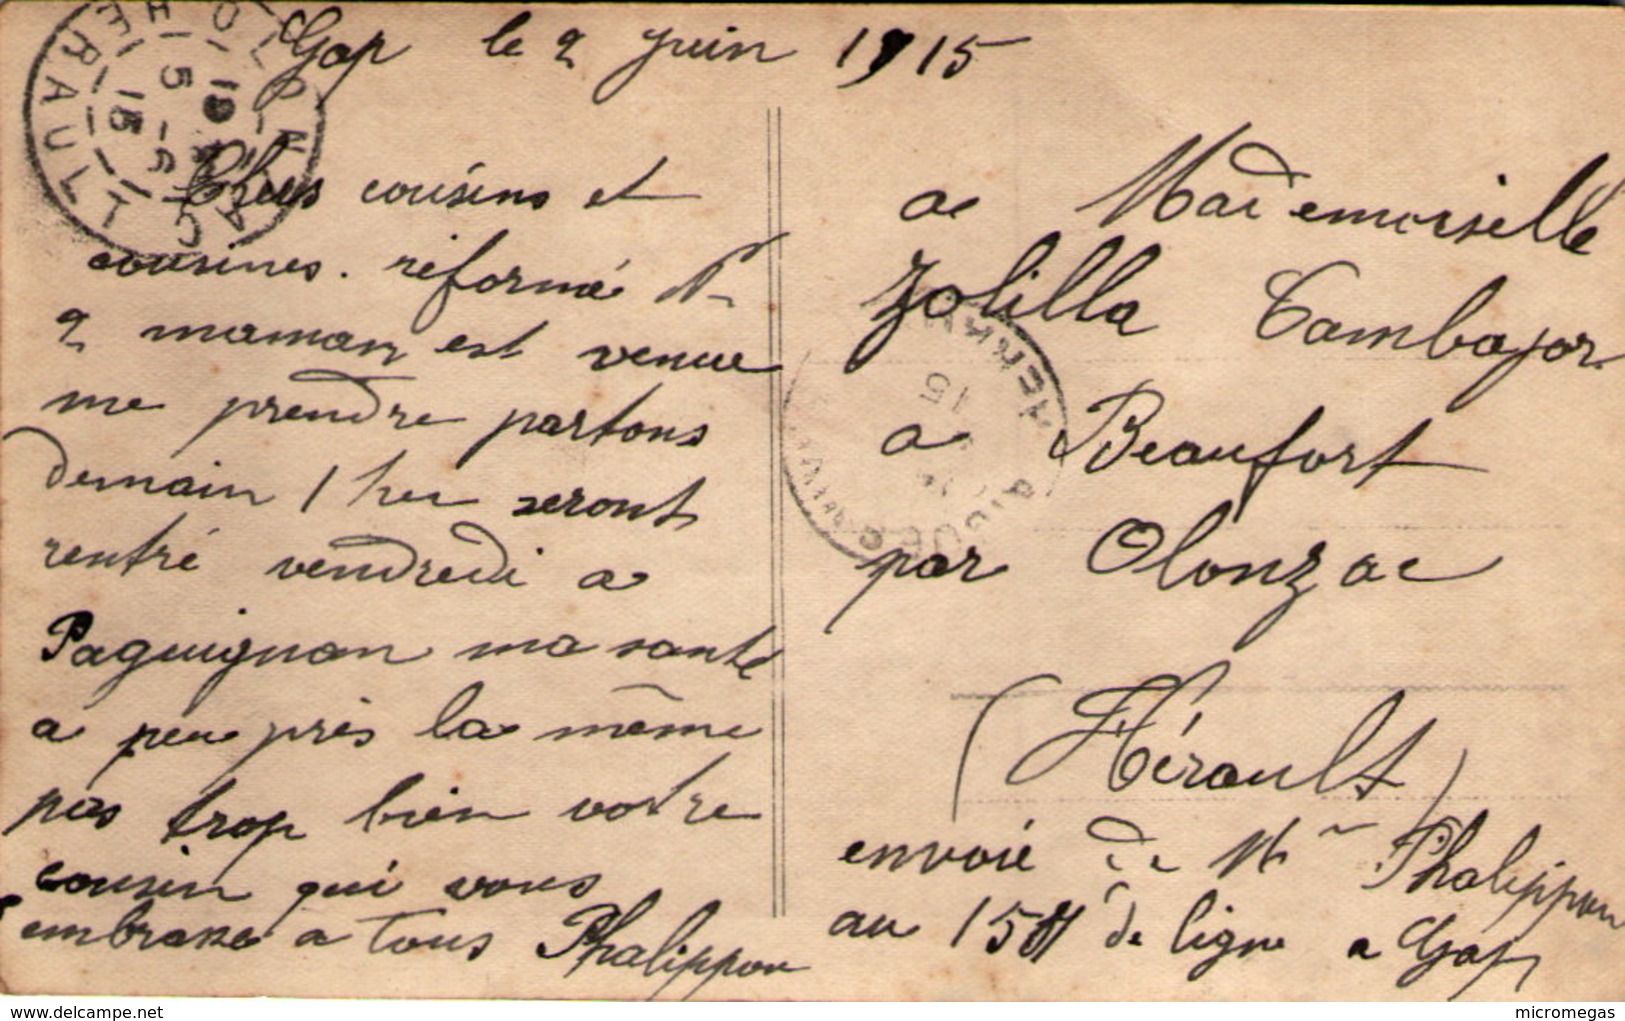 Gap le 2 Juin 1915
Chers cousins et
cousines. réformé N°
2 maman est venue
me prendre partons
demain 1 heu seront
rentré vendredi a
Paguignan ma santé
a peu près la même
pas trop bien votre
cousin qui vous
embrasse a tous Phalippou
a Mademoiselle
Zolilla Cambajor
a Beaufort
par Olonzac
(Hérault)
envoie de Mr Phalippou
au 158 de ligne a Gap
OLONZAC
HERAULT
5 - 6
15
AIGUES
15
delcampe.net
micromegas